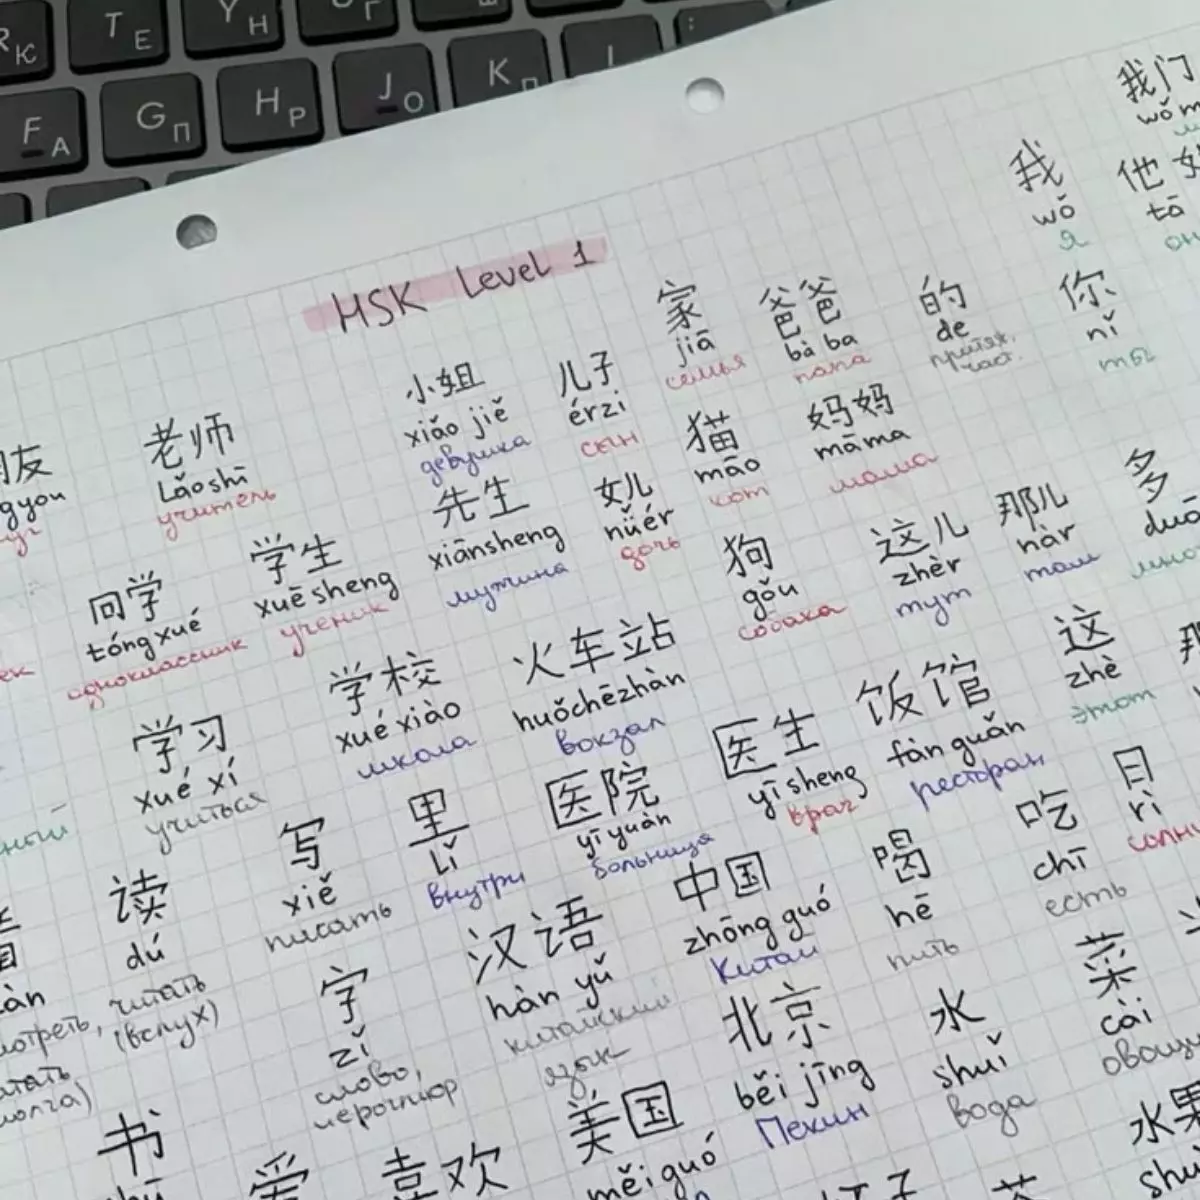 R К
T Е
Y Н
F А
G П
H Р
J О
K
HSK Level 1
我门
wǒ
我
wǒ
я
他
tā
он
你
nǐ
ты
的
de
притяж.
част.
爸爸
bà ba
папа
家
jiā
семья
儿子
érzi
сын
小姐
xiǎo jiě
девушка
老师
Lǎoshī
учитель
友
gyou
妈妈
māma
мама
猫
māo
кот
女儿
nǚér
дочь
先生
xiānsheng
мужчина
学生
xuēsheng
ученик
同学
tóngxué
одноклассник
多
duō
那儿
nàr
там
这儿
zhèr
тут
狗
gǒu
собака
火车站
huǒchēzhàn
вокзал
学校
xué xiào
школа
学习
xué xí
учиться
这
zhè
этот
饭馆
fàn guǎn
ресторан
医生
yī sheng
врач
医院
yī yuàn
больница
里
lǐ
внутри
写
xiě
писать
读
dú
читать
(вслух)
日
rì
吃
chī
есть
喝
hē
пить
中国
zhōng guó
Китай
汉语
hàn yǔ
китайский
язык
字
zǐ
слово,
иероглиф
菜
cài
овощи
水
shuǐ
вода
北京
běi jīng
Пекин
美国
měi guó
喜欢
爱
书
水果